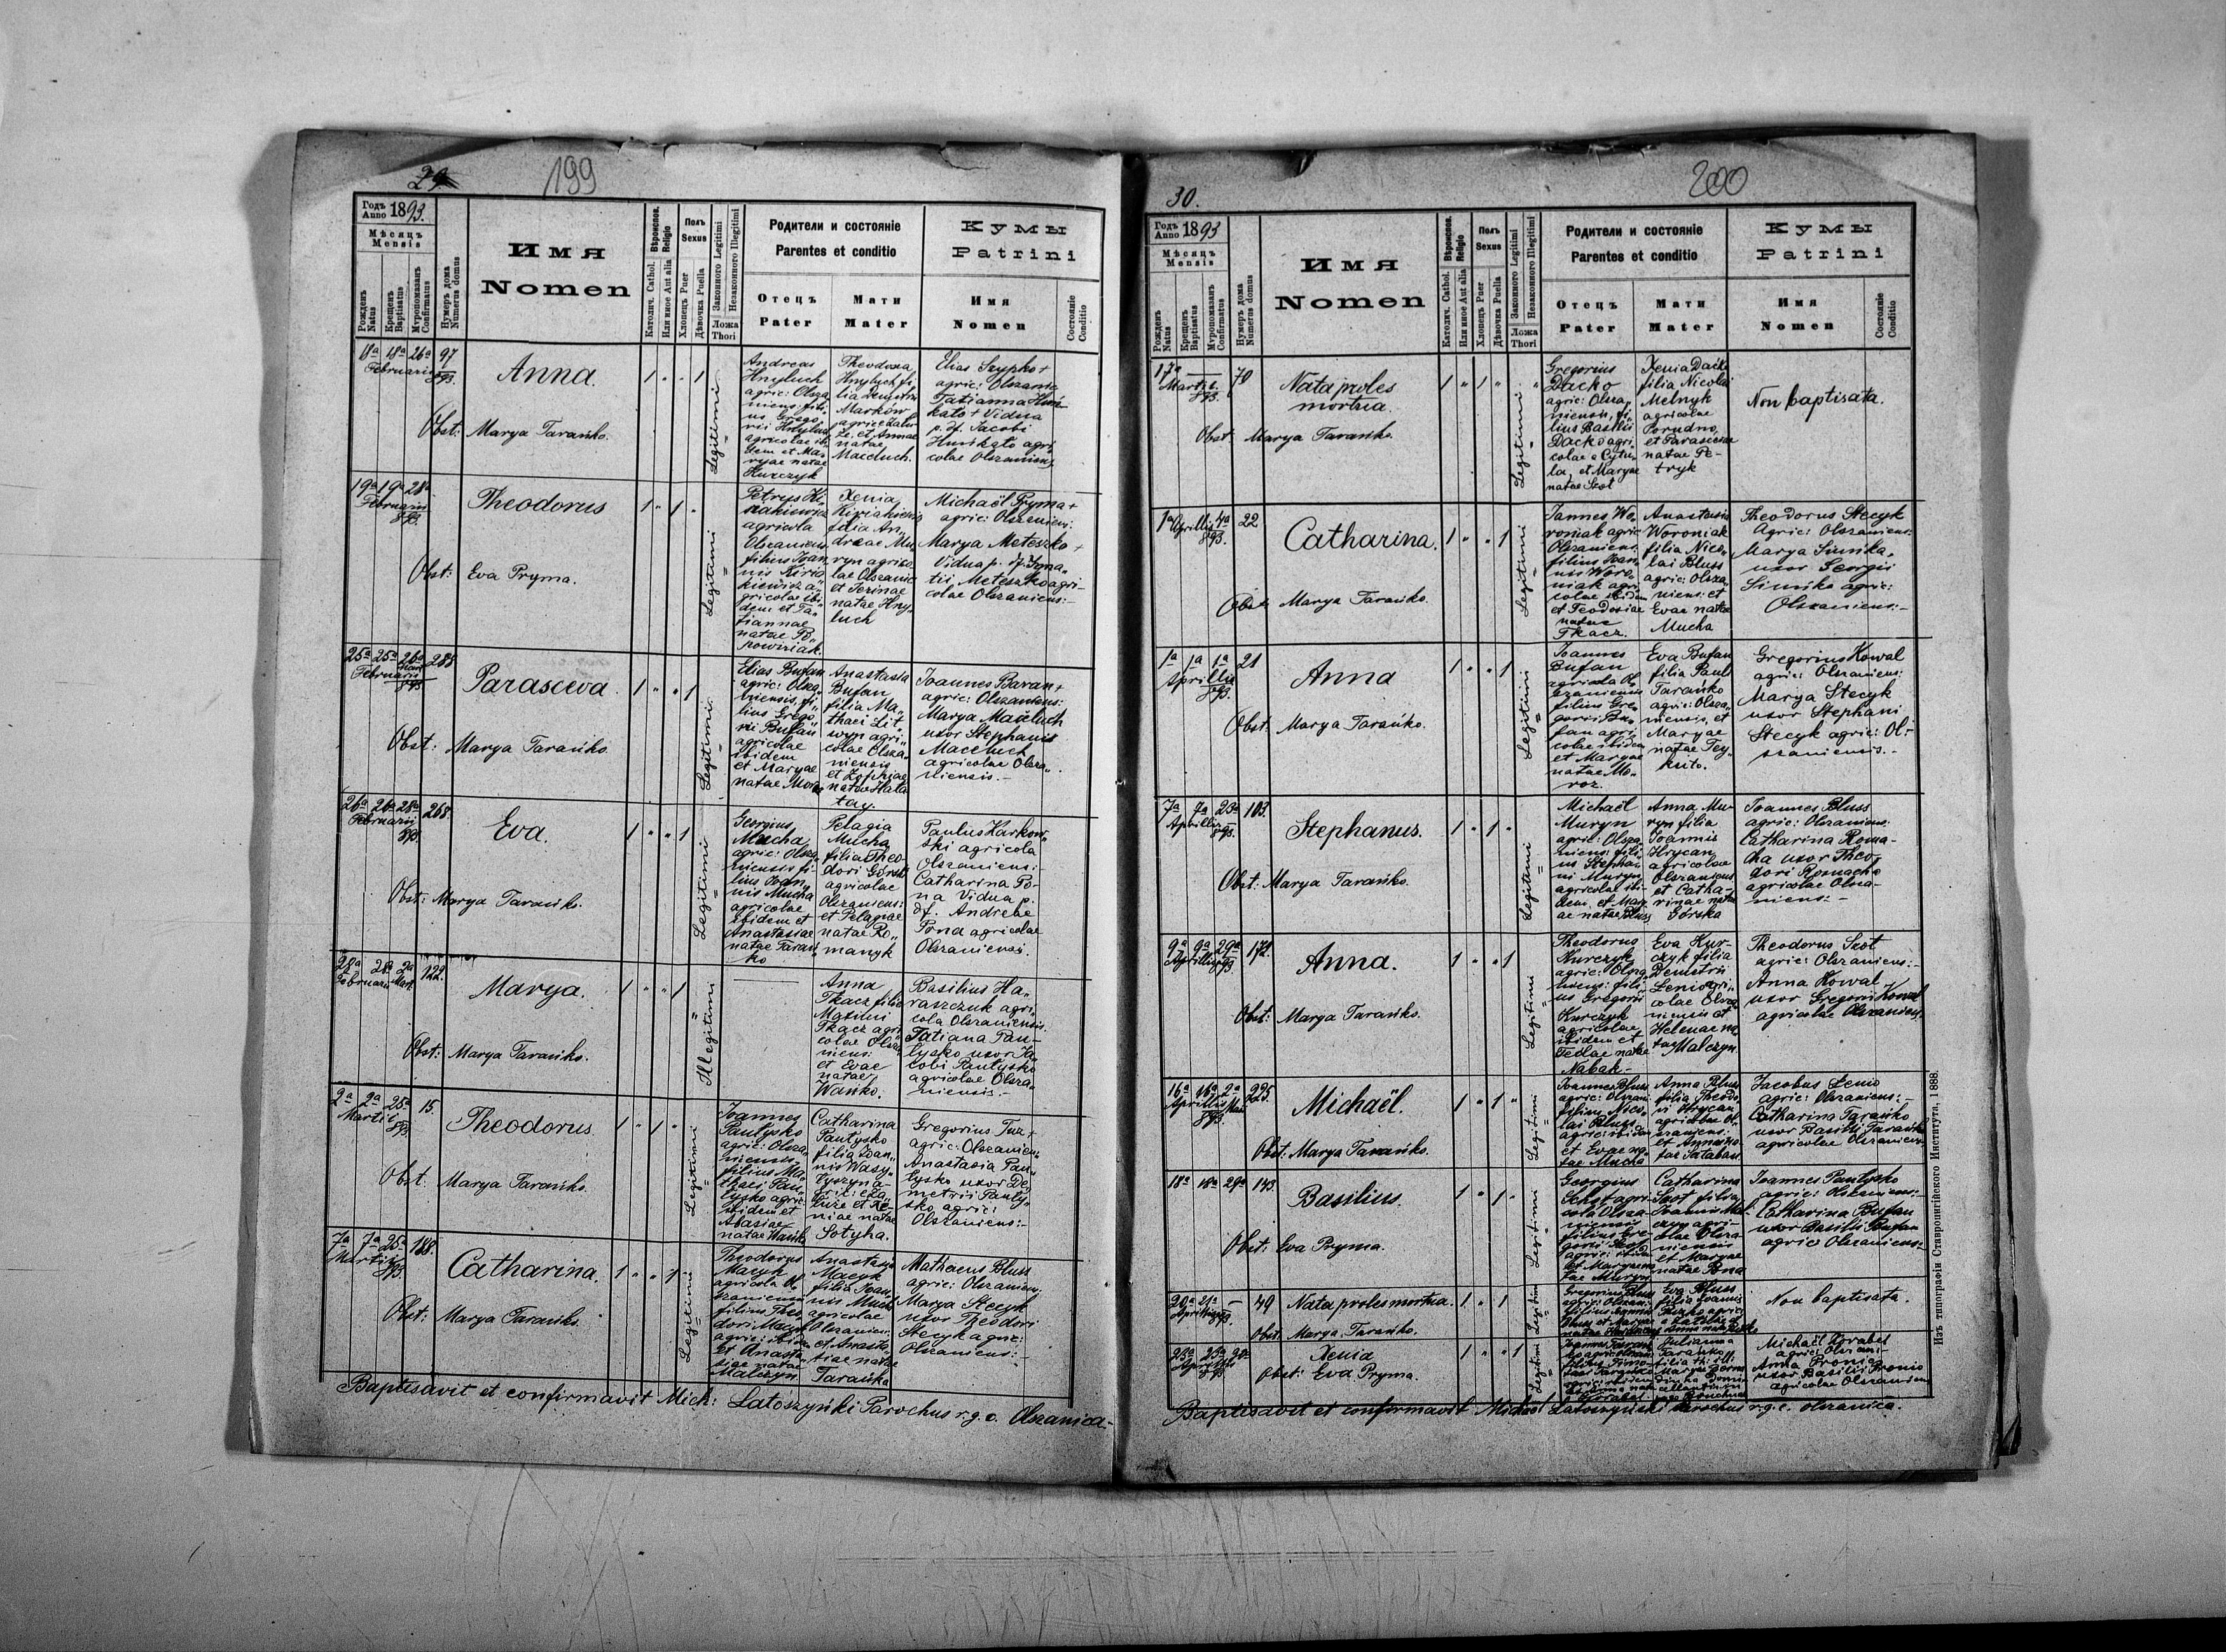 29
199
Годъ Anno 1893.
Мѣсяцъ
Mensis
Рожденъ
Natus
Крещенъ
Baptisatus
Мѵропомазанъ
Confirmatus
Нумеръ дома
Numerus domus
Имя
Nomen
Вѣроиспов.
Religio
Католич. Cathol.
Или иное Aut alia
Полъ
Sexus
Хлопецъ Puer
Дѣвочка Puella
Законного Legitimi
Незаконного Illegitimi
Ложа
Thori
Родители и состояніе
Parentes et conditio
Отецъ
Pater
Мати
Mater
Кумы
Patrini
Имя
Nomen
Состояніе
Conditio
18a 18a 26a 97
Februarii
893.
Anna.
Obst: Marya Tarańko.
Legitimi
Andreas
Hnyluch
agric: Olsza
niens: fili
us Grego
rii Hnyluch
agricolae ibi
dem et Ma
ryae natae
Kurczyk
Theodoza
Hnyluch fi
lia Demetrii
Marków
agricolae
et Annae
natae
Macełuch.
Elias Szypko +
agric: Olszanic
Tatianna
Vidua
p. df. Jacobi
agri
colae Olszaniens
19a 19a 28a
Februarii
893.
Theodorus
Obst: Eva Pryma.
Legitimi
Petrus Ki
riakiewicz
agricola
Olszaniens
filius Joan
nis Kiria
kiewicz a
gricolae ibi
dem et Ta
tiannae
natae Po
powiziak.
Xenia
Kiriakiewic
filia An
dreae Mu
ryn agrico
lae Olszanic
et Irinae
natae Hny
luch
Michaël Pryma +
agric: Olszaniens:
Marya Meteszko +
Vidua p. df. Igna
tii Meteszko agri
colae Olszaniens:-
25a 25a 26a 285
Februarii Marti
893
Parasceva.
Obst: Marya Tarańko.
Legitimi
Elias Bufan
agric: Olsza
niensis, fi
lius Grego
rii Bufan
agricolae
ibidem
et Maryae
natae Moroz
Anastasia
Bufan
filia Ma
thaei Lit
wyn agri
colae Olsza
niensis
et Zophiae
natae Hała
tay.
Joannes Baran +
agric: Olszaniens:
Marya Macełuch
uxor Stephani
Macełuch
agricolae Olsza
niensis.-
26a 26a 28a 268.
Februarii
893.
Eva.
Obst: Marya Tarańko.
Legitimi
Georgius
Mucha
agric: Olsza
niensis fi
lius Joan
nis Mucha
agricolae
ibidem et
Anastasiae
natae Tarań
ko
Pelagia
Mucha
filia Theo
dori Górski
agricolae
Olszaniens:
et Pelagiae
natae Ro
manyk
Paulus Karkow
ski agricola
Olszaniens:
Catharina Po
na Vidua p.
df. Andreae
Pona agricolae
Olszaniensi.
28a 28a 2a 122.
Februarii Mart.
Marya.
Obst: Marya Tarańko.
Illegitimi
Anna
Tkacz filia
Maximi
Tkacz agri
colae Olsza
niens:
et Evae
natae
Wańko.
Basilius Ha
raszczuk agri
cola Olszaniensis.
Tatiana Pau
łysko uxor Ja
cobi Paułysko
agricolae Olsza
niensis.-
2a 2a 25a 15.
Martii
893.
Theodorus
Obst: Marya Tarańko.
Legitimi
Joannes
Paułysko
agric: Olsza
niensis
filius Ma
thaei Pau
łysko agric
ibidem et
Atasiae
natae Wańko
Catharina
Paułysko
filia Joan
nis Wasy
łyszyn a
gric: e Za
łuże et Xe
niae natae
Sotyha.
Gregorius Tuz +
agric: Olszaniens
Anastasia Pau
łysko uxor De
metrii Pauły
sko agric:
Olszaniens:-
7a 7a 25a 188.
Martii
893.
Catharina.
Obst: Marya Tarańko.
Legitimi
Theodorus
Macyk
agricola Ol
szaniensis
filius Theo
dori Macyk
agric: ibidem
et Anasta
siae natae
Malczyn
Anastasia
Macyk
filia Joan
nis Mucha
agricolae
Olszaniens:
et Anasta
tiae natae
Tarańko
Mathaeus Bluss
agric: Olszaniens.
Marya Stecyk
uxor Theodori
Stecyk agric:
Olszaniens:-
Baptisavit et confirmavit Mich: Latoszyński Parochus r. g. c. Olszanica.-
30.
200
Годъ Anno 1893
Мѣсяцъ
Mensis
Рожденъ
Natus
Крещенъ
Baptisatus
Мѵропомазанъ
Confirmatus
Нумеръ дома
Numerus domus
Имя
Nomen
Вѣроиспов.
Religio
Католич. Cathol.
Или иное Aut alia
Полъ
Sexus
Хлопецъ Puer
Дѣвочка Puella
Законного Legitimi
Незаконного Illegitimi
Ложа
Thori
Родители и состояніе
Parentes et conditio
Отецъ
Pater
Мати
Mater
Кумы
Patrini
Имя
Nomen
Состояніе
Conditio
17a 70
Martii
893.
Nata proles
mortua.
Obst: Marya Tarańko.
Legitimi
Gregorius
Dacko
agric: Olsza
niensis, fi
lius Basilii
Dacko agri
colae e Cytu
la, et Maryae
natae Szot
Xenia Dacko
filia Nicolai
Melnyk
agricolae
Porudno,
et Parascevae
natae Pe
tryk
Non baptisata.
1a Aprillis 4a 22
893.
Catharina.
Obst: Marya Tarańko.
Legitimi
Joannes Wo
roniak agric
Olszaniens:
filius Joan
nis Woro
niak agri
colae ibidem
et Teodosiae
natae
Tkacz.
Anastasia
Woroniak
filia Nico
lai Bluss
agric: Olsza
niens: et
Evae natae
Mucha
Theodorus Stecyk
Agric: Olszaniens:
Marya Simika,
uxor Georgii
Simika agric:
Olszaniens:-
1a 1a 1a 21
Aprillis
893.
Anna
Obst: Marya Tarańko.
Legitimi
Joannes
Bufan
agricola Ol
szaniensis
filius Gre
gorii Bu
fan agri
colae ibidem
et Maryae
natae Mo
roz.
Eva Bufan
filia Pauli
Tarańko
agric: Olsza
niensis, et
Maryae
natae Tey
Gregorius Kowal
agric: Olszaniens:
Marya Stecyk
uxor Stephani
Stecyk agric: Ol
szaniensis.-
7a 7a 23a 103.
Aprillis
893.
Stephanus.
Obst: Marya Tarańko.
Legitimi
Michaël
Muryn
agric: Olsza
niens: fili
us Stepha
ni Muryn
agricolae ibi
dem et Mary
ae natae Bluss
Anna Mu
ryn filia
Joannis
Hrycan
agricolae
Olszaniens
et Catha
rinae natae
Górska
Joannes Bluss
agric: Olszaniens:
Catharina Roma
cha uxor Theo
dori Romacha
agricolae Olsza
niens:-
9a 9a 29a 172.
Aprillis
893
Anna.
Obst: Marya Tarańko.
Legitimi
Theodorus
Kurczyk
agric: Olsza
niens: fili
us Gregorii
Kurczyk
agricolae
ibidem et
Teclae natae
Nabak.-
Eva Kur
czyk filia
Demetrii
Lenio agri
colae Olsza
niensis et
Helenae na
tae Malczyn
Theodorus Szot
agric: Olszaniens:-
Anna Kowal
uxor Gregorii Kowal
agricolae Olszaniens.
16a 16a 2a 225.
Aprillis Maii
893.
Michaël.
Obst: Marya Tarańko.
Legitimi
Joannes Bluss
agric: Olszani
filius Nico
lai Bluss
agric: ibidem
et Evae na
tae Mucha
Anna Bluss
filia Theodo
ri Hrycan
agricolae Ol
szaniens:
et Annae na
tae Sataban.
Jacobus Lenio
agric: Olszaniens:-
Catharina Tarańko
uxor Basilii Tarańko
agricolae Olszaniens
18a 18a 29a 143.
Basilius.
Obst: Eva Pryma.
Legitimi
Georgius
Szot agri
cola Olsza
niensis
filius Gre
gorii Szot
agric: ibid
et Maryae na
tae Muryn
Catharina
Szot filia
Joannis Mal
czyn agri
colae Olsza
niensis
et Maryae
natae Pona
Joannes Paułysko
agric: Olszaniens:-
Catharina Bufan
uxor Basilii Bufan
agric: Olszaniens:-
20a 21a - 49
Aprillis 893.
Nata proles mortua.
Obst: Marya Tarańko.
Legitimi
Gregorius Bluss
Eva Bluss
filia Joannis
Non baptisata.
23a 23a 29a
Aprillis
893
Xenia
Obst: Eva Pryma.
Legitimi
Julianna
Tarańko
Michaël Korabel
agric: Olszani
Anna Pronio
uxor Basilii Pronio
agricolae Olszaniens
Baptisavit et confirmavit Michaël Latoszyński Parochus r. g. c. Olszanica.
Изъ типографіи Ставропигійского Института, 1888.